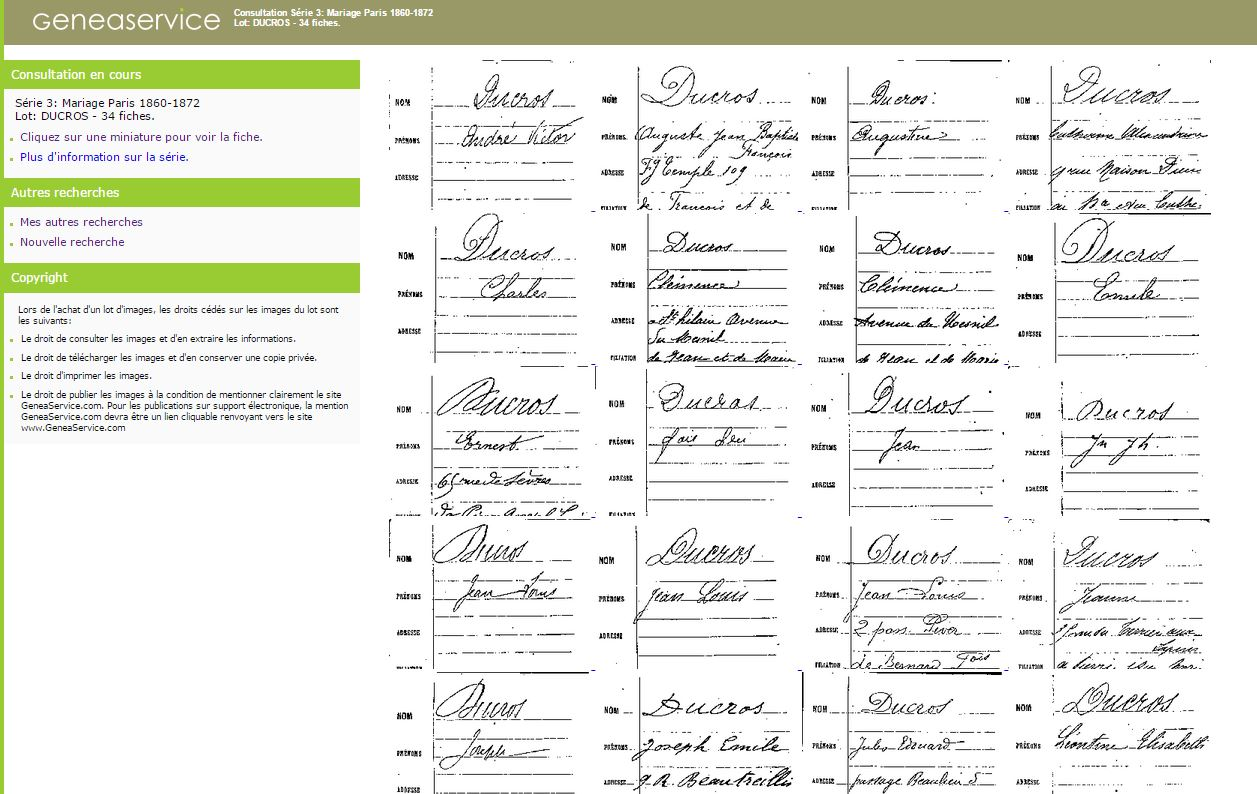 GENEASERVICE
Consultation Série 3: Mariage Paris 1860-1872
Lot: DUCROS - 34 fiches.
Consultation en cours
Série 3: Mariage Paris 1860-1872
Lot: DUCROS - 34 fiches.
Cliquez sur une miniature pour voir la fiche.
Plus d'information sur la série.
Autres recherches
Mes autres recherches
Nouvelle recherche
Copyright
Lors de l'achat d'un lot d'images, les droits cédés sur les images du lot sont
les suivants:
Le droit de consulter les images et d'en extraire les informations.
Le droit de télécharger les images et d'en conserver une copie privée.
Le droit d'imprimer les images.
Le droit de publier les images à la condition de mentionner clairement le site
GeneaService.com. Pour les publications sur support électronique, la mention
GeneaService.com devra être un lien cliquable renvoyant vers le site
www.GeneaService.com
NOM Ducros
PRÉNOMS André Victor
ADRESSE
NOM Ducros
PRÉNOMS Auguste Jean Baptiste
François
ADRESSE Fg Temple 109
FILIATION de Francois et de
NOM Ducros
PRÉNOMS Augustine
ADRESSE
NOM Ducros
PRÉNOMS Catherine Alexandrine
ADRESSE
FILIATION
NOM Ducros
PRÉNOMS Charles
ADRESSE
NOM Ducros
PRÉNOMS Clémence
ADRESSE hilair Avenue
du Mesnil
FILIATION de Jean et de Marie
NOM Ducros
PRÉNOMS Clémence
ADRESSE Avenue du Mesnil
FILIATION de Jean et de Marie
NOM Ducros
PRÉNOMS Emile
ADRESSE
NOM Ducros
PRÉNOMS Ernest
ADRESSE 65 rue de Sèvres
NOM Ducros
PRÉNOMS
ADRESSE
NOM Ducros
PRÉNOMS Jean
ADRESSE
NOM Ducros
PRÉNOMS Jn Jh.
ADRESSE
NOM Ducros
PRÉNOMS Jean Louis
ADRESSE
NOM Ducros
PRÉNOMS Jean Louis
ADRESSE
NOM Ducros
PRÉNOMS Jean Louis
ADRESSE 2 pass. Piver
FILIATION de Bernard
NOM Ducros
PRÉNOMS Jeanne
ADRESSE
FILIATION
NOM Ducros
PRÉNOMS Joseph
ADRESSE
NOM Ducros
PRÉNOMS Joseph Emile
ADRESSE 9 R. Beautreillis
NOM Ducros
PRÉNOMS Jules Edouard
ADRESSE passage Beaulieu 5
NOM Ducros
PRÉNOMS Léontine Elisabeth
ADRESSE